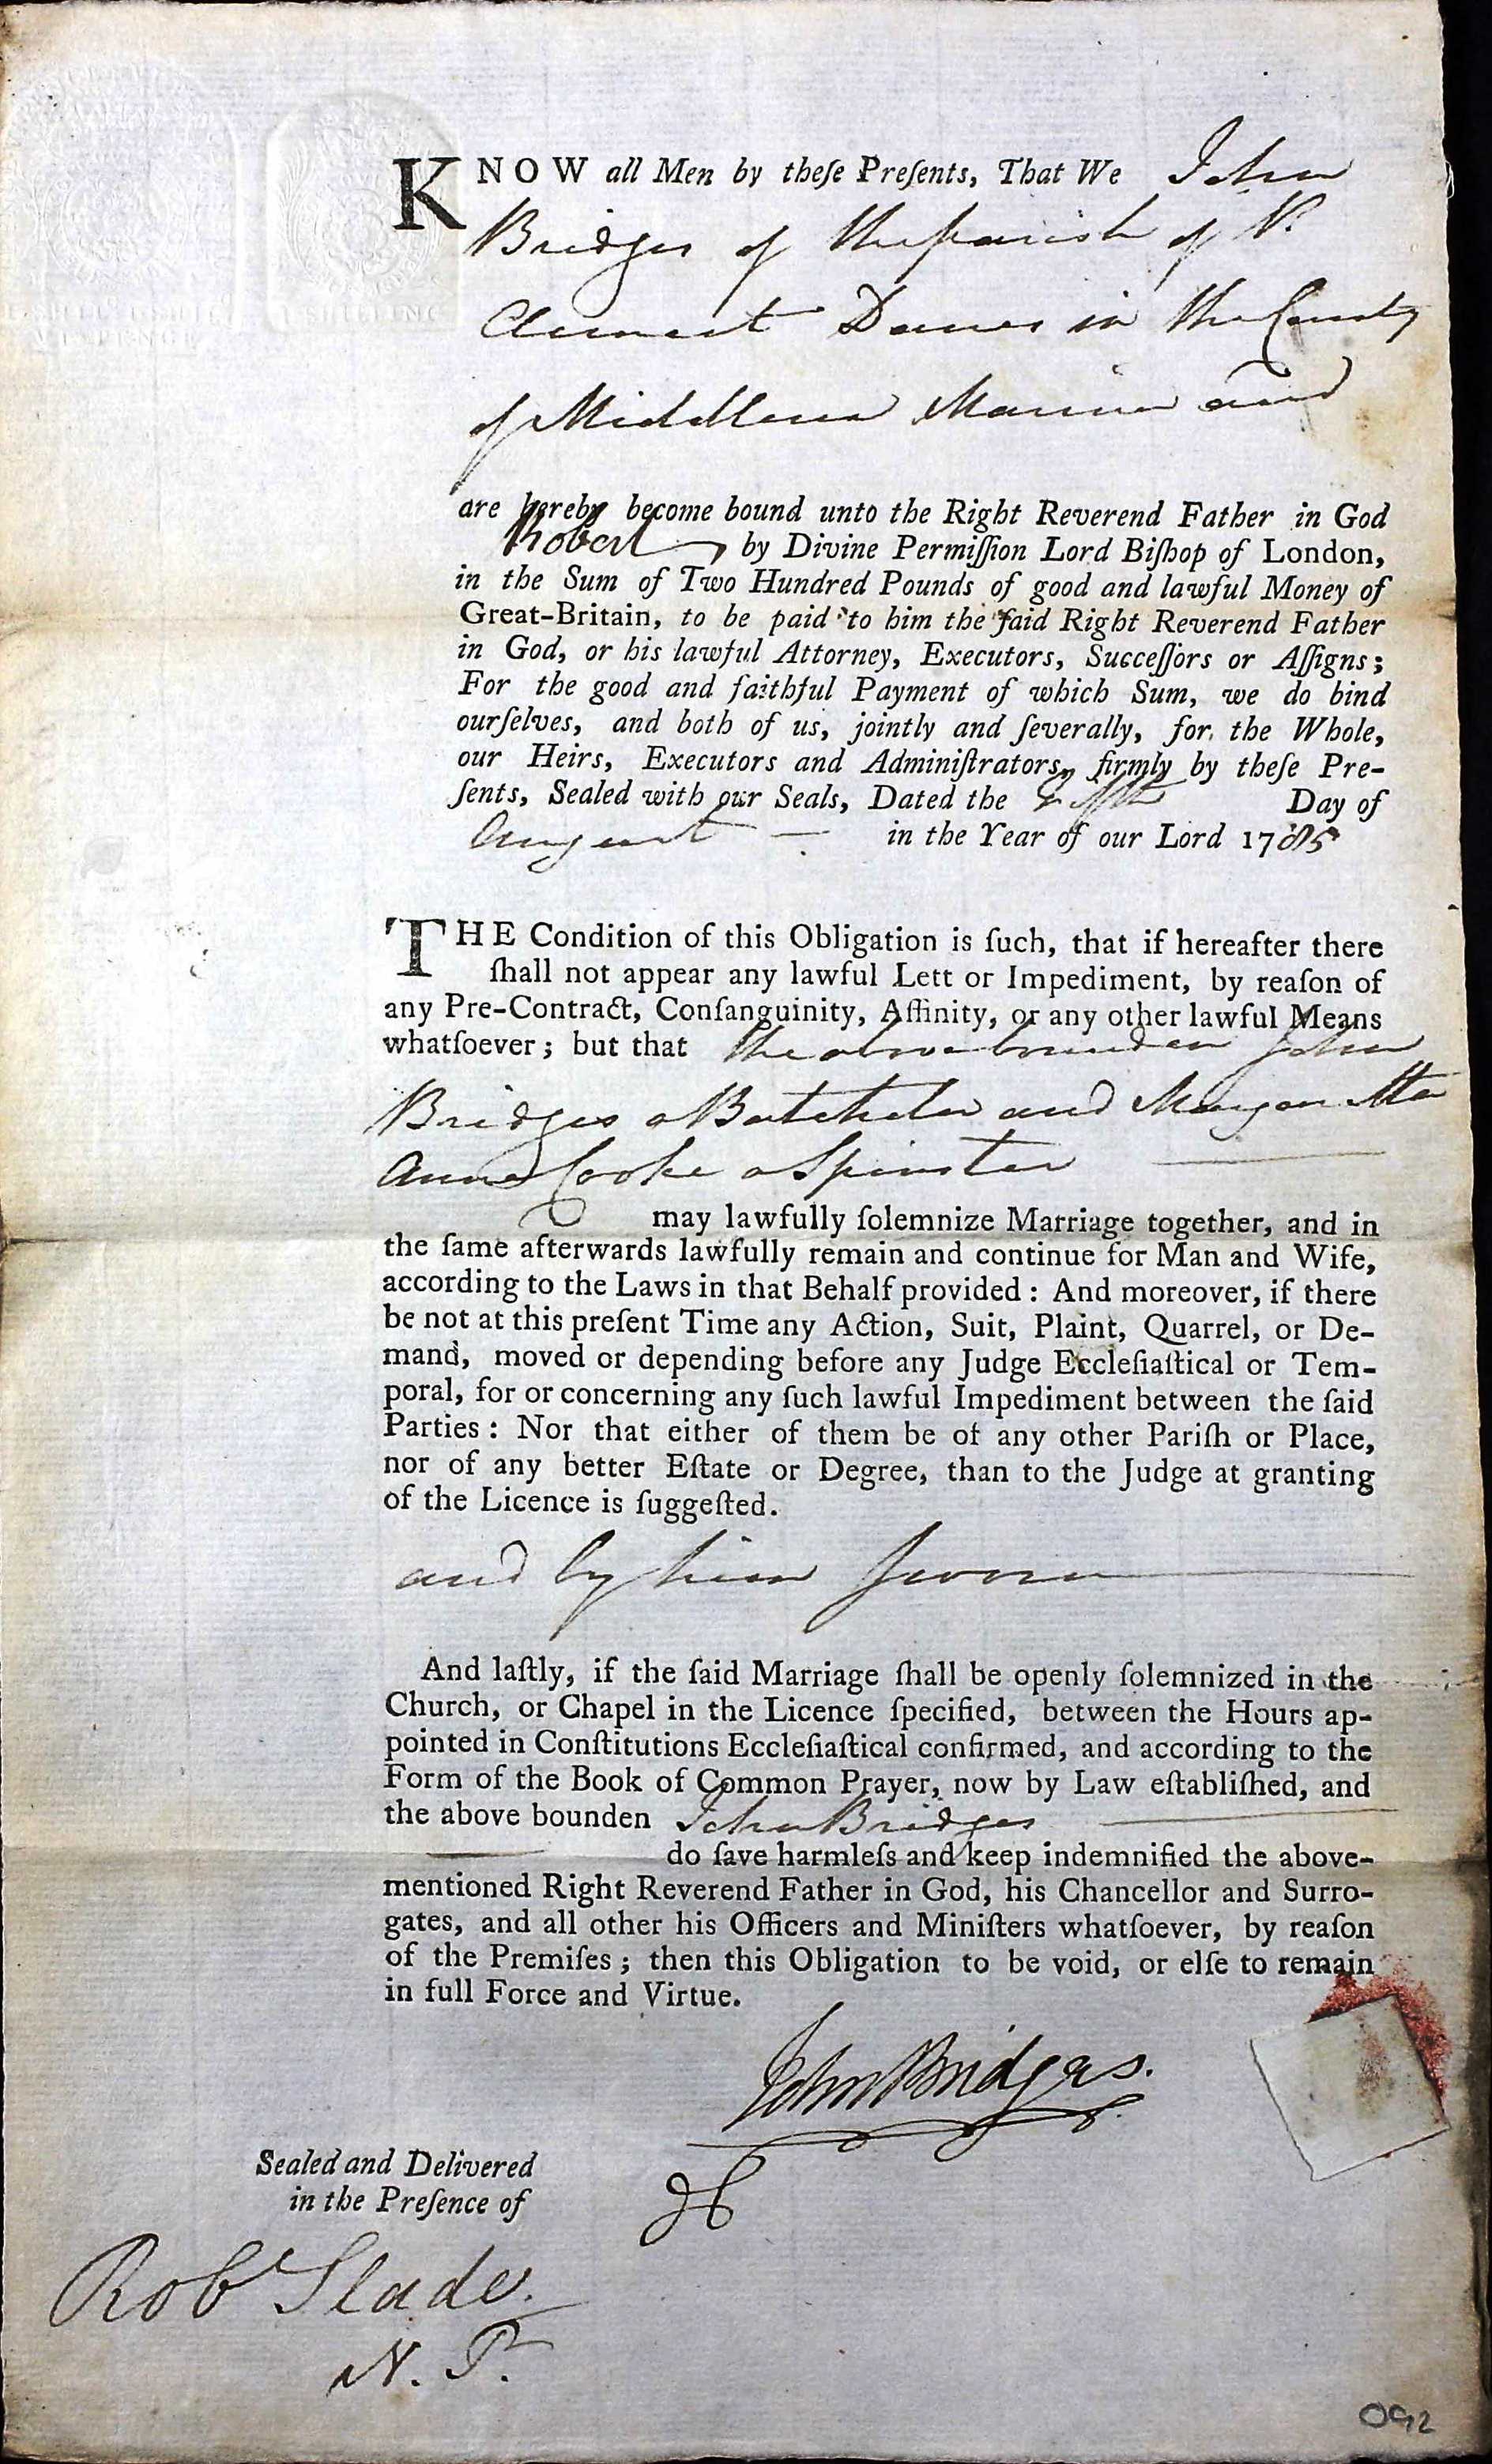 KNOW all Men by theſe Preſents, That We John
Bridges of the parish of St.
Clement Danes in the County
of Middlesex Mariner and
are hereby become bound unto the Right Reverend Father in God
Robert by Divine Permiſſion Lord Biſhop of London,
in the Sum of Two Hundred Pounds of good and lawful Money of
Great-Britain, to be paid to him the ſaid Right Reverend Father
in God, or his lawful Attorney, Executors, Succeſſors or Aſſigns;
For the good and faithful Payment of which Sum, we do bind
ourſelves, and both of us, jointly and ſeverally, for the Whole,
our Heirs, Executors and Adminiſtrators, firmly by theſe Pre-
ſents, Sealed with our Seals, Dated the Fifth Day of
August — in the Year of our Lord 1785
THE Condition of this Obligation is ſuch, that if hereafter there
ſhall not appear any lawful Lett or Impediment, by reaſon of
any Pre-Contract, Conſanguinity, Affinity, or any other lawful Means
whatſoever; but that the above bounden John
Bridges a Batchelor and Margaretta
Anne Cooke a Spinster
may lawfully ſolemnize Marriage together, and in
the ſame afterwards lawfully remain and continue for Man and Wife,
according to the Laws in that Behalf provided: And moreover, if there
be not at this preſent Time any Action, Suit, Plaint, Quarrel, or De-
mand, moved or depending before any Judge Eccleſiaſtical or Tem-
poral, for or concerning any ſuch lawful Impediment between the ſaid
Parties: Nor that either of them be of any other Pariſh or Place,
nor of any better Eſtate or Degree, than to the Judge at granting
of the Licence is ſuggeſted.
and by him Sworn
And laſtly, if the ſaid Marriage ſhall be openly ſolemnized in the
Church, or Chapel in the Licence ſpecified, between the Hours ap-
pointed in Conſtitutions Eccleſiaſtical confirmed, and according to the
Form of the Book of Common Prayer, now by Law eſtabliſhed, and
the above bounden John Bridges
do ſave harmleſs and keep indemnified the above-
mentioned Right Reverend Father in God, his Chancellor and Surro-
gates, and all other his Officers and Miniſters whatſoever, by reaſon
of the Premiſes; then this Obligation to be void, or elſe to remain
in full Force and Virtue.
John Bridges.
Sealed and Delivered
in the Preſence of
Robt Slade.
N. P.
092